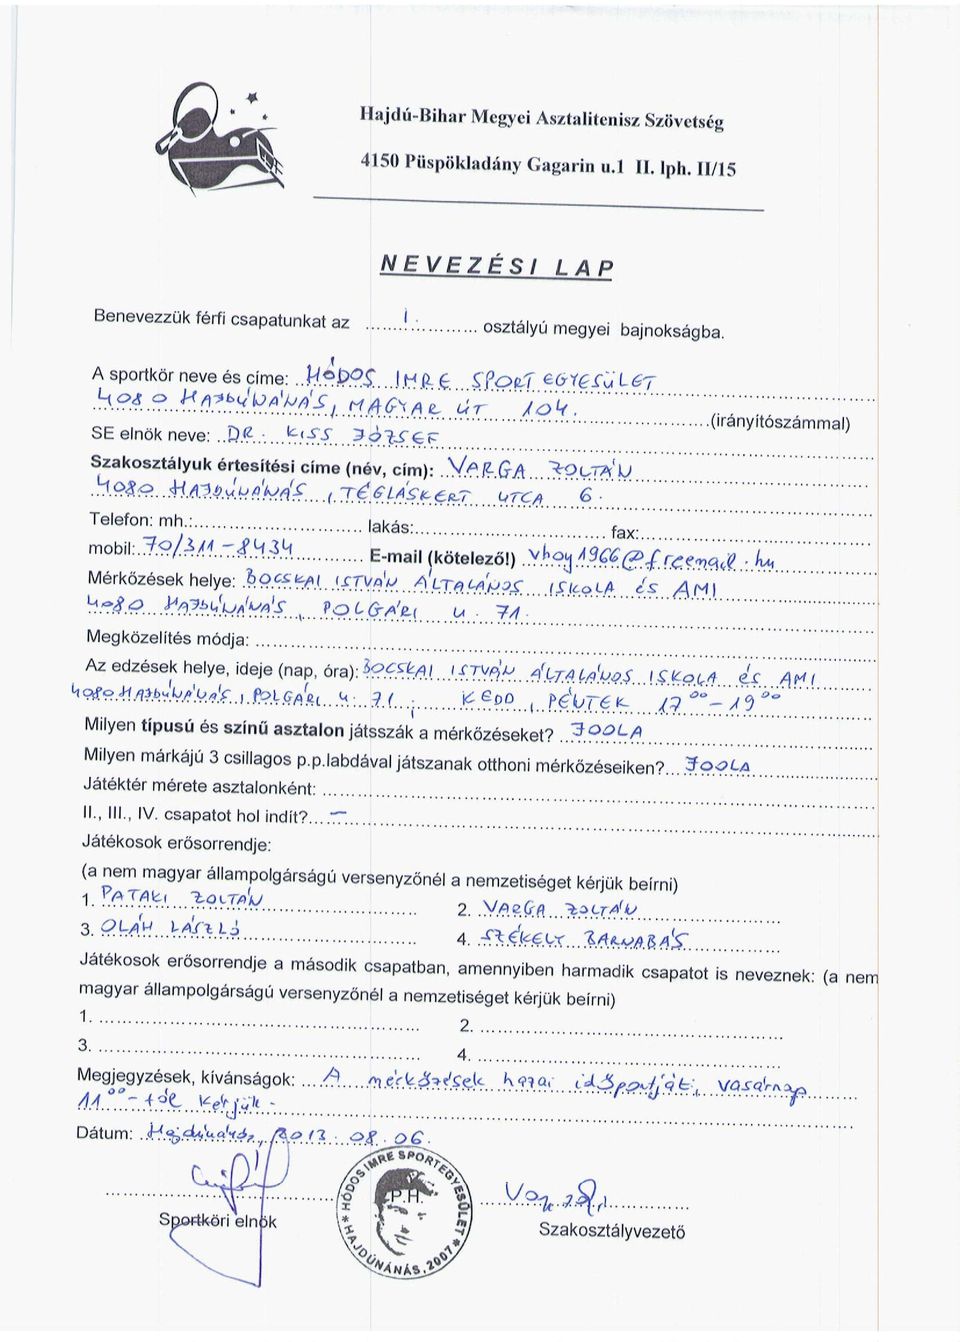 Hajdú-Bihar Megyei Asztalitenisz Szövetség
4150 Püspökladány Gagarin u.1 II. lph. II/15
NEVEZÉSI LAP
Benevezzük férfi csapatunkat az ....I...... osztályú megyei bajnokságba.
A sportkör neve és címe: HÓDOS IMRE SPORTEGYESÜLET
4080 HAJDÚNÁNÁS, MAGYAR ÚT 104. (irányítószámmal)
SE elnök neve: DR. KISS JÓZSEF
Szakosztályuk értesítési címe (név, cím): VARGA ZOLTÁN
4080 HAJDÚNÁNÁS, TÉGLÁSKERT UTCA 6.
Telefon: mh.: lakás: fax:
mobil: 70/311-8434 E-mail (kötelező!) vhoy1966@freemail.hu
Mérkőzések helye: BOCSKAI ISTVÁN ÁLTALÁNOS ISKOLA ÉS AMI
4080 HAJDÚNÁNÁS, POLGÁRI U. 71.
Megközelítés módja:
Az edzések helye, ideje (nap, óra): BOCSKAI ISTVÁN ÁLTALÁNOS ISKOLA ÉS AMI
4080 HAJDÚNÁNÁS, POLGÁRI U. 71. KEDD, PÉNTEK 17⁰⁰-19⁰⁰
Milyen típusú és színű asztalon játsszák a mérkőzéseket? JOOLA
Milyen márkájú 3 csillagos p.p.labdával játszanak otthoni mérkőzéseiken? JOOLA
Játéktér mérete asztalonként:
II., III., IV. csapatot hol indít? -
Játékosok erősorrendje:
(a nem magyar állampolgárságú versenyzőnél a nemzetiséget kérjük beírni)
1. PATAKI ZOLTÁN 2. VARGA ZOLTÁN
3. OLÁH LÁSZLÓ 4. SZÉKELY BARNABÁS
Játékosok erősorrendje a második csapatban, amennyiben harmadik csapatot is neveznek: (a nem
magyar állampolgárságú versenyzőnél a nemzetiséget kérjük beírni)
1. 2.
3. 4.
Megjegyzések, kívánságok: A mérkőzések hazai időpontját, vasárnap
11⁰⁰-tól kérjük.
Dátum: Hajdúnánás, 2013. 08. 06.
HÓDOS IMRE SPORTEGYESÜLET * HAJDÚNÁNÁS, 2007 *
P.H.
Sportköri elnök
Szakosztályvezető